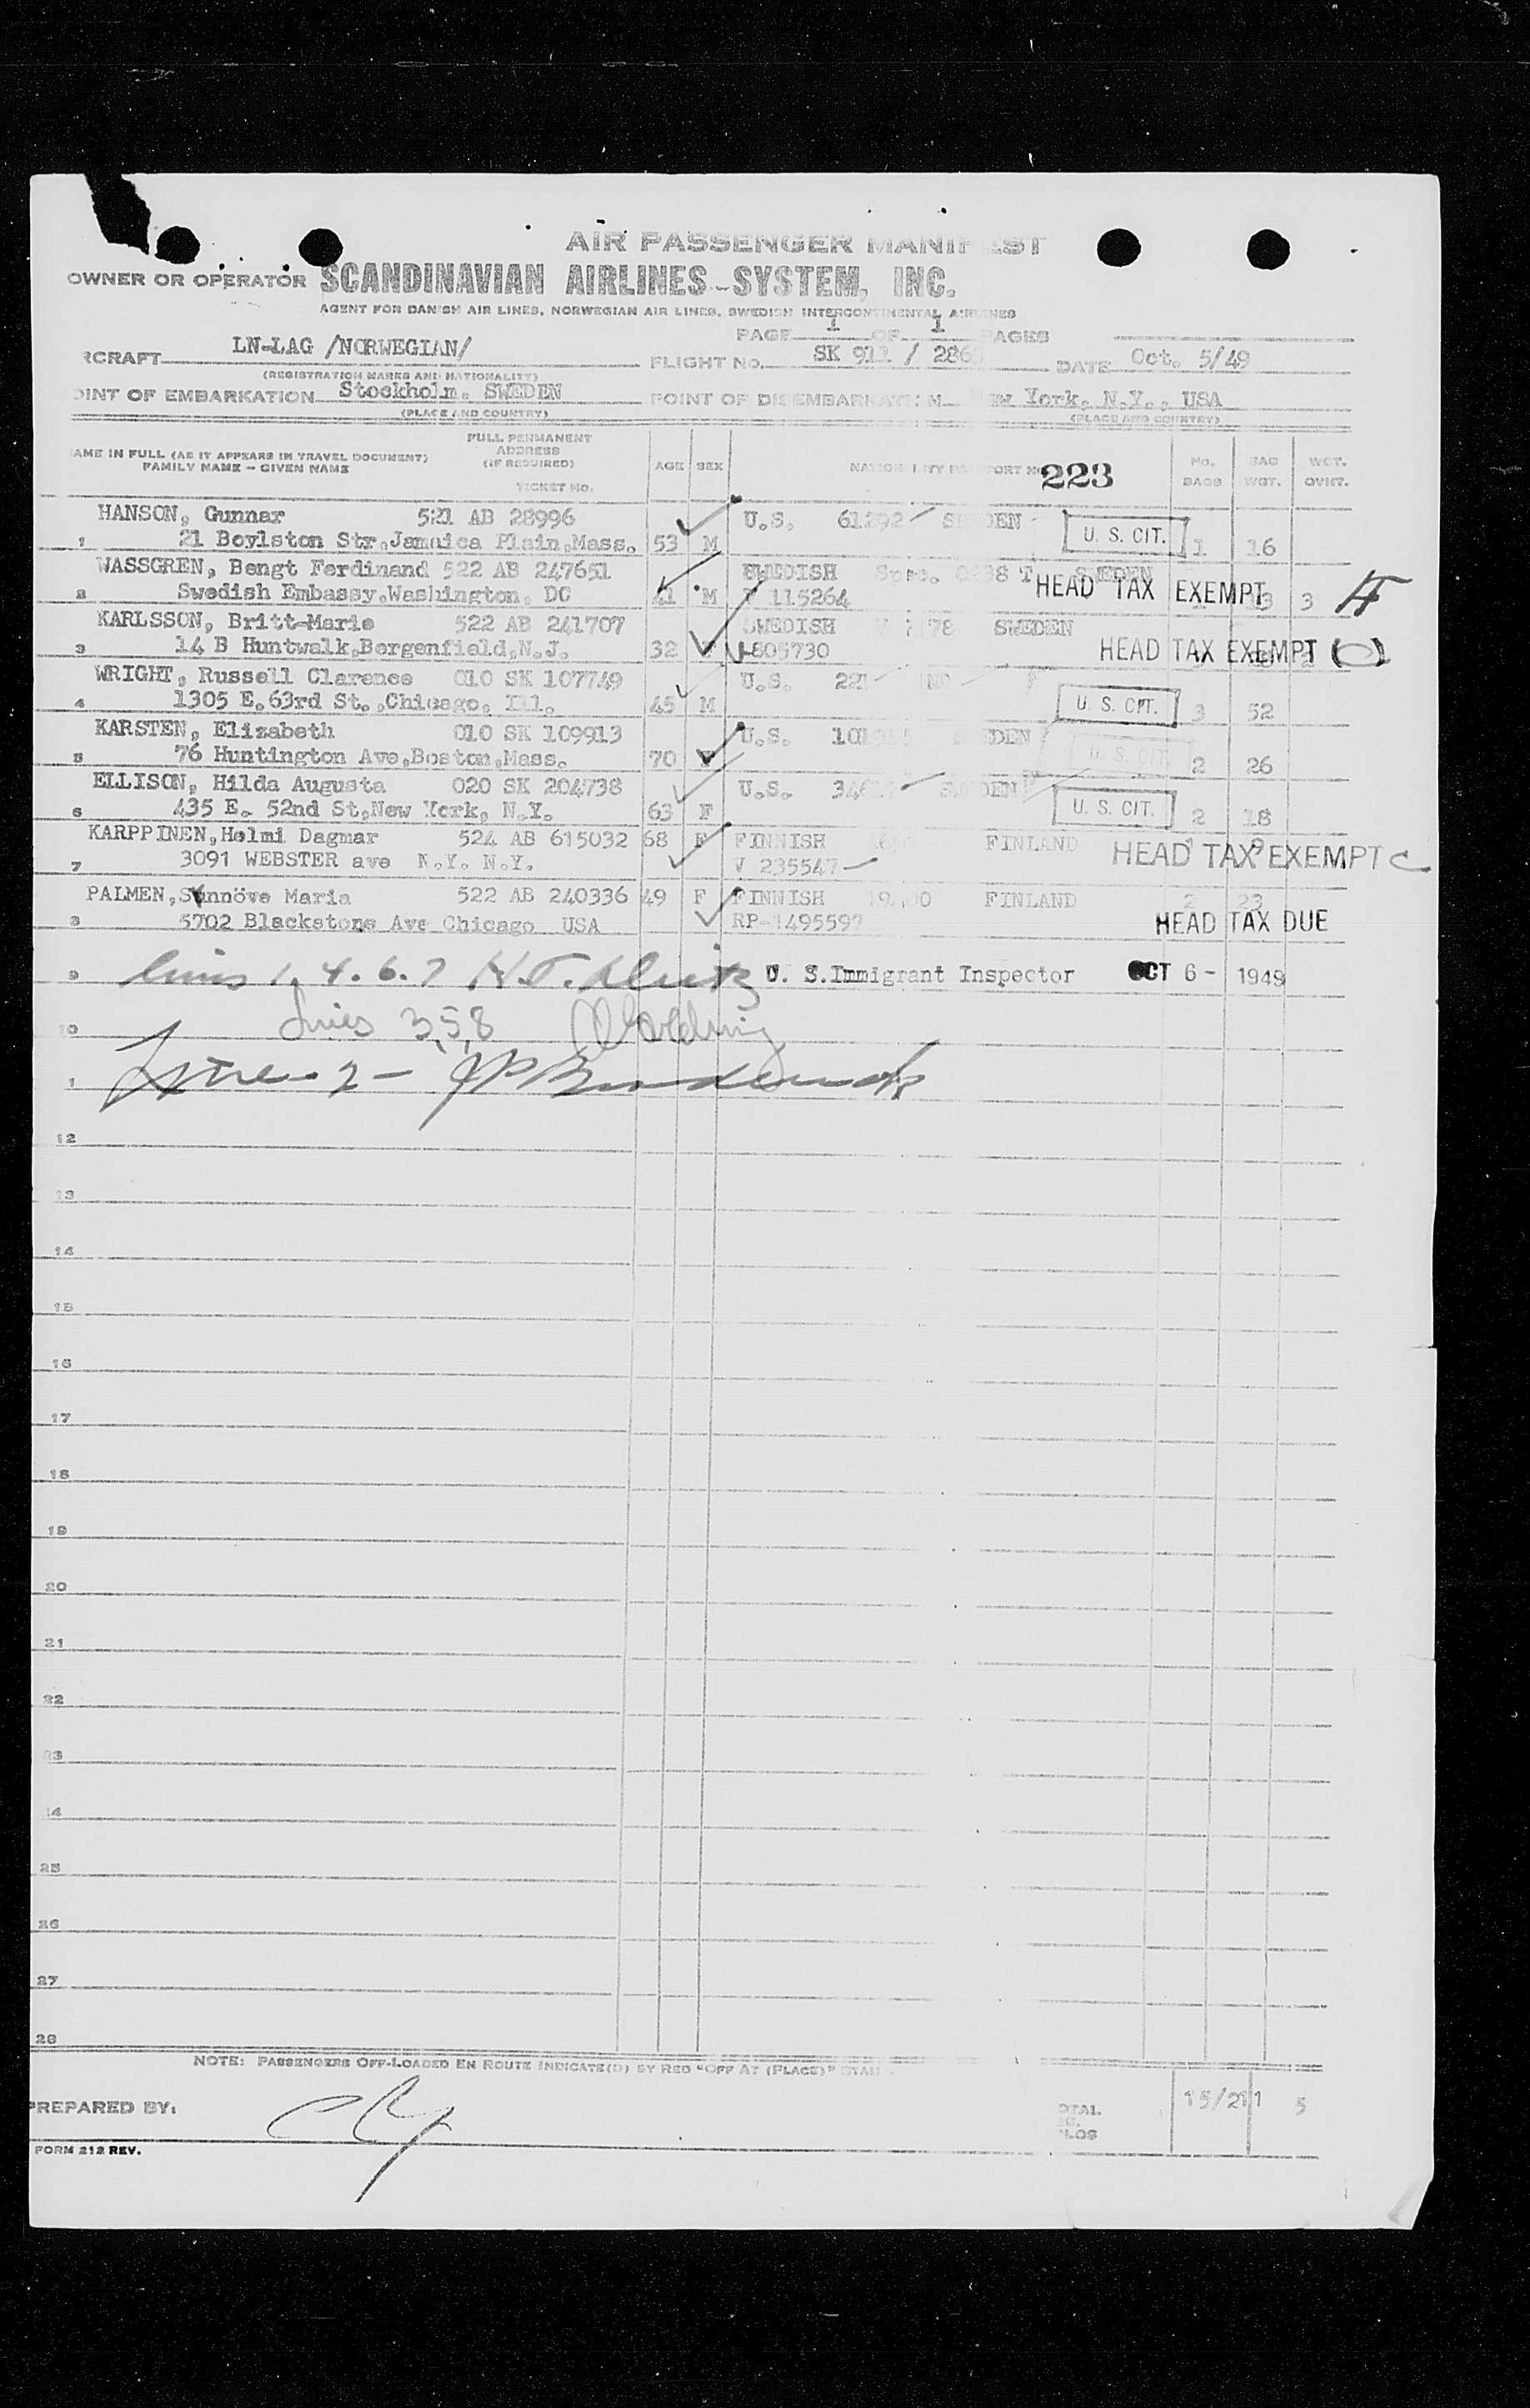 AIR PASSENGER MANIFEST
OWNER OR OPERATOR SCANDINAVIAN AIRLINES-SYSTEM, INC.
AGENT FOR DANISH AIR LINES, NORWEGIAN AIR LINES, SWEDISH INTERCONTINENTAL AIRLINES
PAGE 1 OF 1 PAGES
RCRAFT LN-LAG /NORWEGIAN/ FLIGHT NO. SK 911 / DATE Oct. 5/49
(REGISTRATION MARKS AND NATIONALITY)
OINT OF EMBARKATION Stockholm. SWEDEN POINT OF DISEMBARKATION New York, N.Y., USA
(PLACE AND COUNTRY) (PLACE AND COUNTRY)
AME IN FULL (AS IT APPEARS IN TRAVEL DOCUMENT) FAMILY NAME - GIVEN NAME FULL PERMANENT ADDRESS (IF REQUIRED) TICKET NO. AGE SEX NATIONALITY PASSPORT NO. 223 NO. BAGS BAG WGT. WGT. OVWT.
HANSON, Gunnar 521 AB 28996 U.S. SWEDEN U. S. CIT.
1 21 Boylston Str,Jamaica Plain,Mass. 53 M 1 16
WASSGREN, Bengt Ferdinand 522 AB 247651 SWEDISH Spec. SWEDEN
2 Swedish Embassy,Washington, DC 41 M 115264 HEAD TAX EXEMPT 3
KARLSSON, Britt-Marie 522 AB 241707 SWEDISH SWEDEN
3 14 B Huntwalk,Bergenfield,N.J. 32 805730 HEAD TAX EXEMPT
WRIGHT, Russell Clarence 010 SK 107749 U.S.
4 1305 E.63rd St.,Chicago, Ill. 45 M U. S. CIT. 3 52
KARSTEN, Elizabeth 010 SK 109913 U.S. SWEDEN
5 76 Huntington Ave,Boston,Mass. 70 F U. S. CIT. 2 26
ELLISON, Hilda Augusta 020 SK 204738 U.S. SWEDEN
6 435 E. 52nd St,New York, N.Y. 63 F U. S. CIT. 2 18
KARPPINEN,Helmi Dagmar 524 AB 615032 68 F FINNISH FINLAND
7 3091 WEBSTER ave N.Y. N.Y. V 235547 HEAD TAX EXEMPT C
PALMEN, Maria 522 AB 240336 49 F FINNISH FINLAND 2 23
8 5702 Blackstone Ave Chicago USA RP-1495597 HEAD TAX DUE
9 lines 1, 4. 6. 7 U. S. Immigrant Inspector OCT 6 - 1949
10 Lines 3,5,8
1 Line 2 -
12
13
14
15
16
17
18
19
20
21
22
23
14
25
26
27
28
NOTE: PASSENGERS OFF-LOADED EN ROUTE INDICATE(D) BY RED "OFF AT (PLACE)" STAMP
PREPARED BY: OTAL 15/211 5
ILOS
FORM 212 REV.